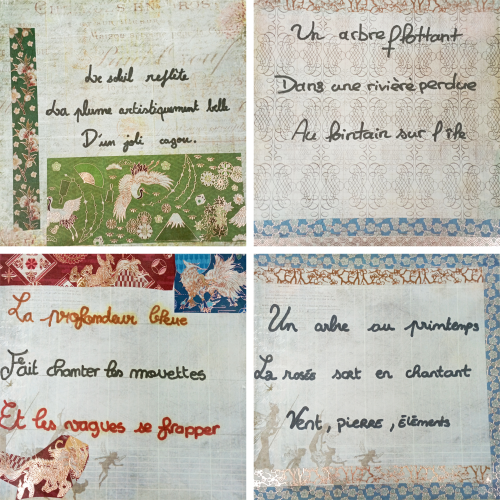 Le soleil reflète
La plume artistiquement belle
D'un joli cagou.
Un arbre flottant
Dans une rivière perdue
Au lointain sur l'île
La profondeur bleue
Fait chanter les mouettes
Et les vagues se frapper
Un arbre au printemps
La rosée sort en chantant
Vent, pierre, éléments